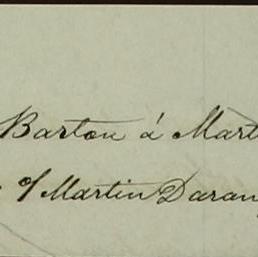 Barton á Mart
c/ Martin Daran